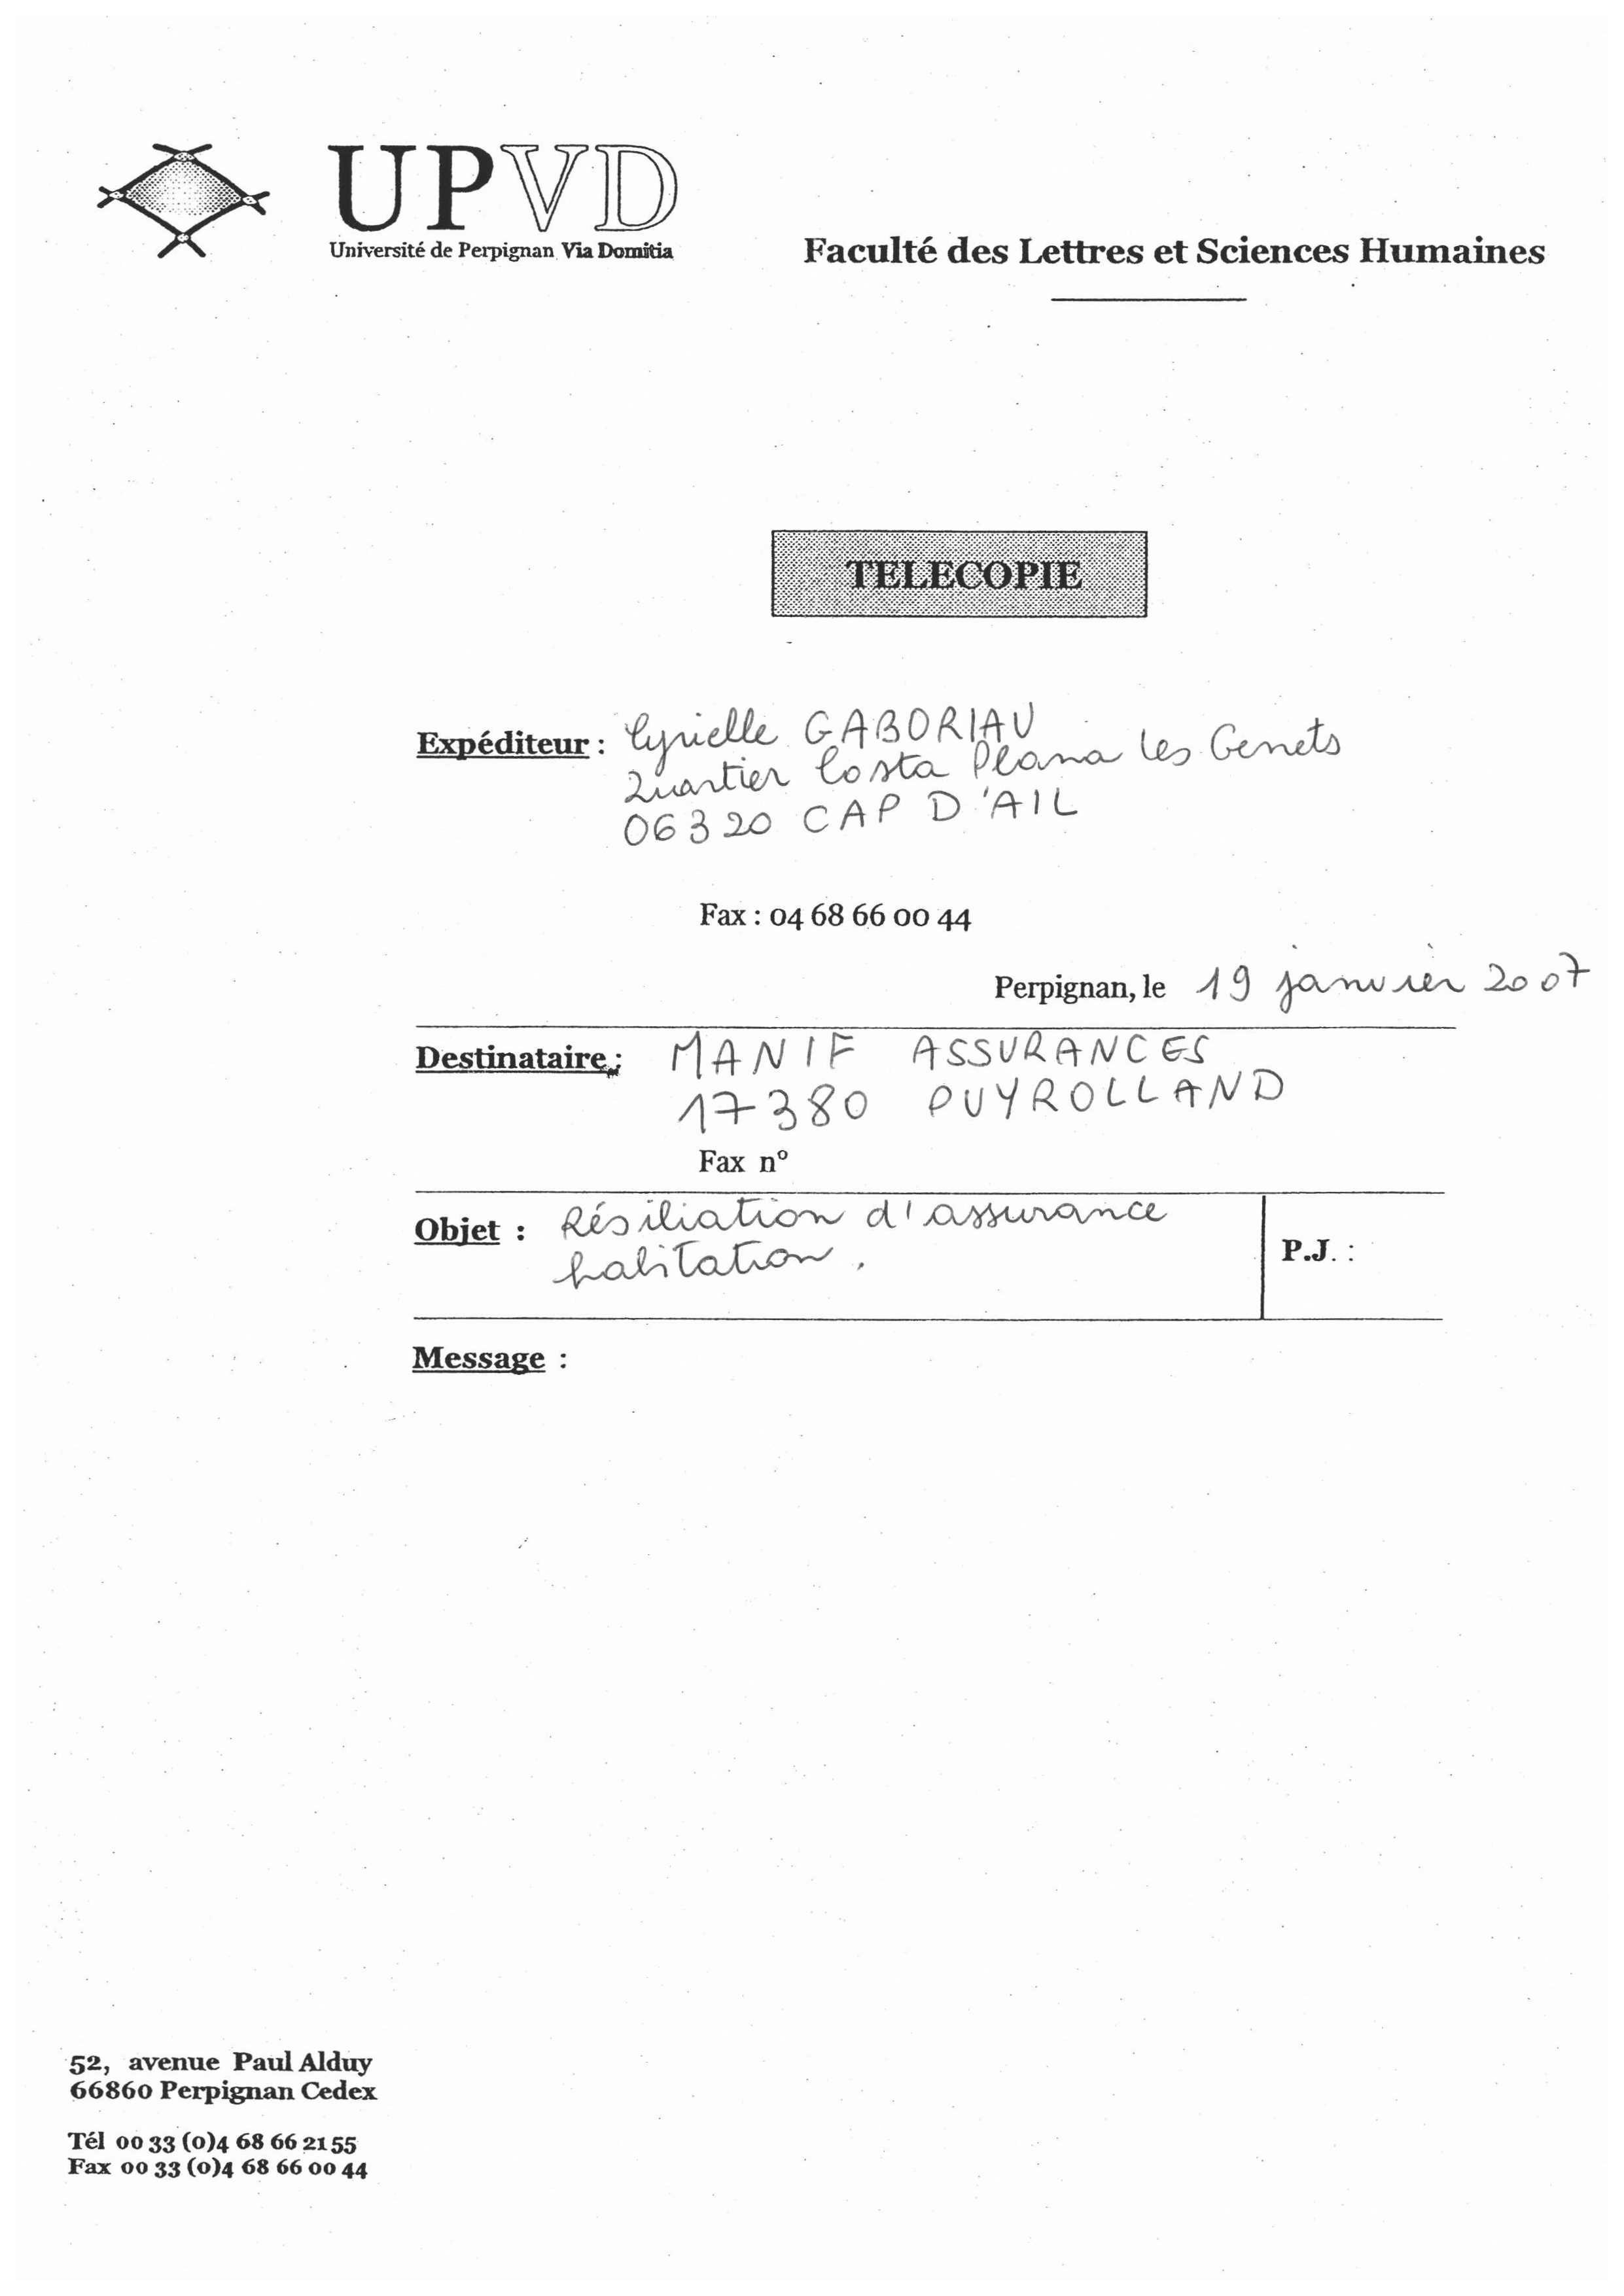 UPVD
Université de Perpignan Via Domitia
Faculté des Lettres et Sciences Humaines
TELECOPIE
Expéditeur : Cyrielle GABORIAU
Quartier Costa Plana Les Genets
06320 CAP D'AIL
Fax : 04 68 66 00 44
Perpignan, le 19 janvier 2007
Destinataire : MANIF ASSURANCES
17380 PUYROLLAND
Fax n°
Objet : Résiliation d'assurance
habitation.
P.J. :
Message :
52, avenue Paul Alduy
66860 Perpignan Cedex
Tél 00 33 (0)4 68 66 21 55
Fax 00 33 (0)4 68 66 00 44